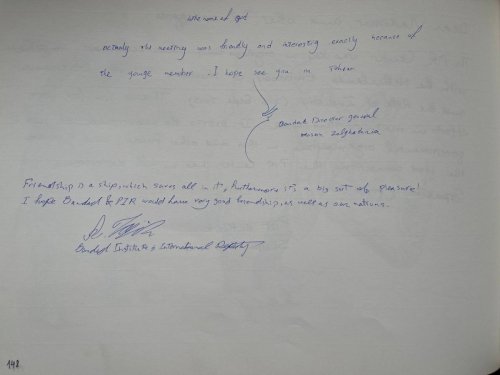 in the name of god
actually the meeting was friendly and interesting exactly because of
the younge member. I hope see you in Tehran
Bandad Director general
Friendship is a ship, which saves all in it, Furthermore it's a big sort of pleasure!
I hope Bandad & PIR would have very good friendship, as well as our nations.
Bandad Institute International
148